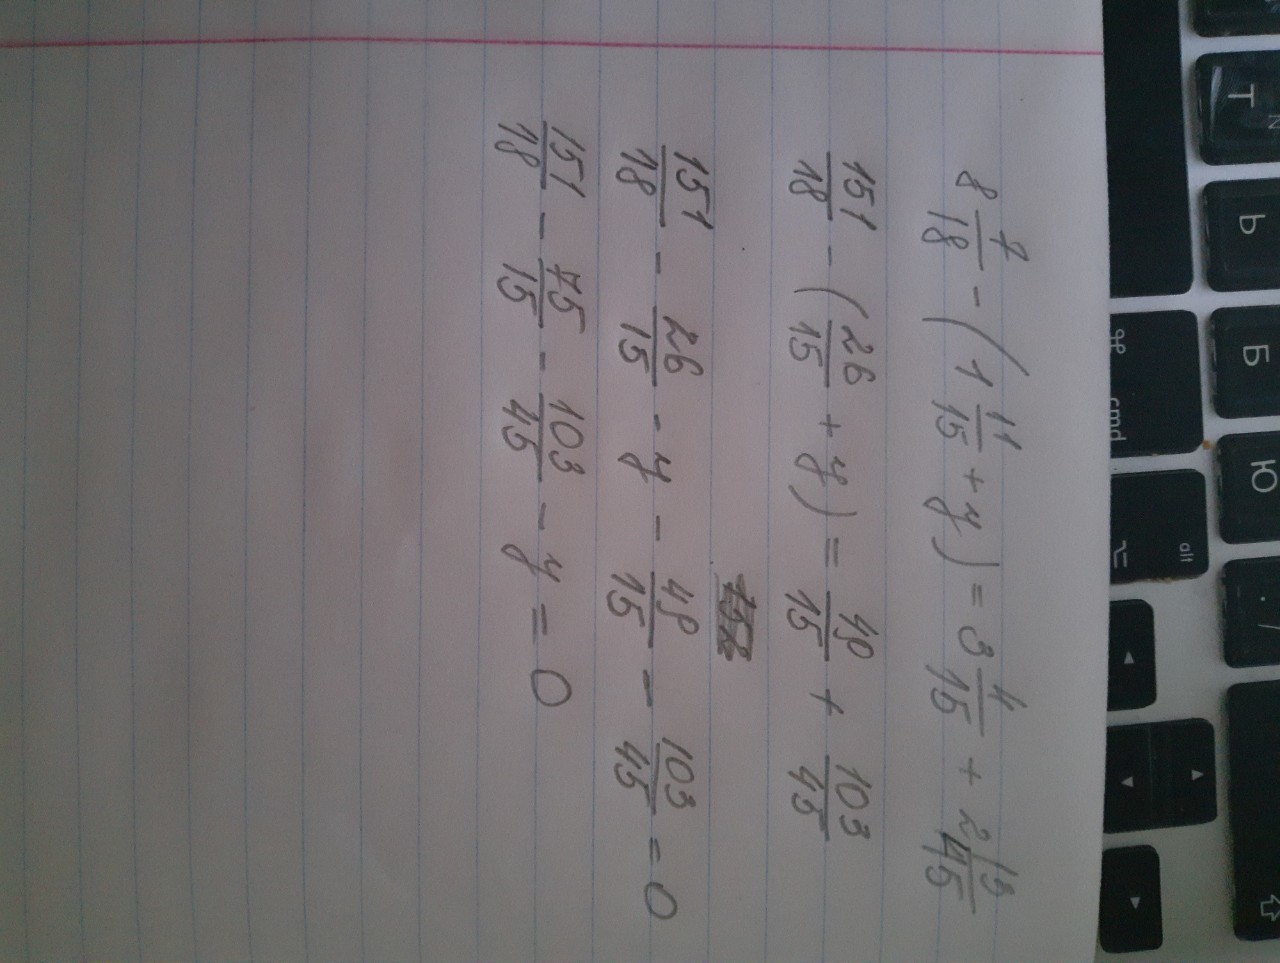 8 7/18 - (1 11/15 + y) = 3 4/15 + 2 13/45
151/18 - (26/15 + y) = 49/15 + 103/45
151/18 - 26/15 - y - 49/15 - 103/45 = 0
151/18 - 75/15 - 103/45 - y = 0
N
Т
Ь
Б
Ю
⌘
cmd
alt
⌥
. /